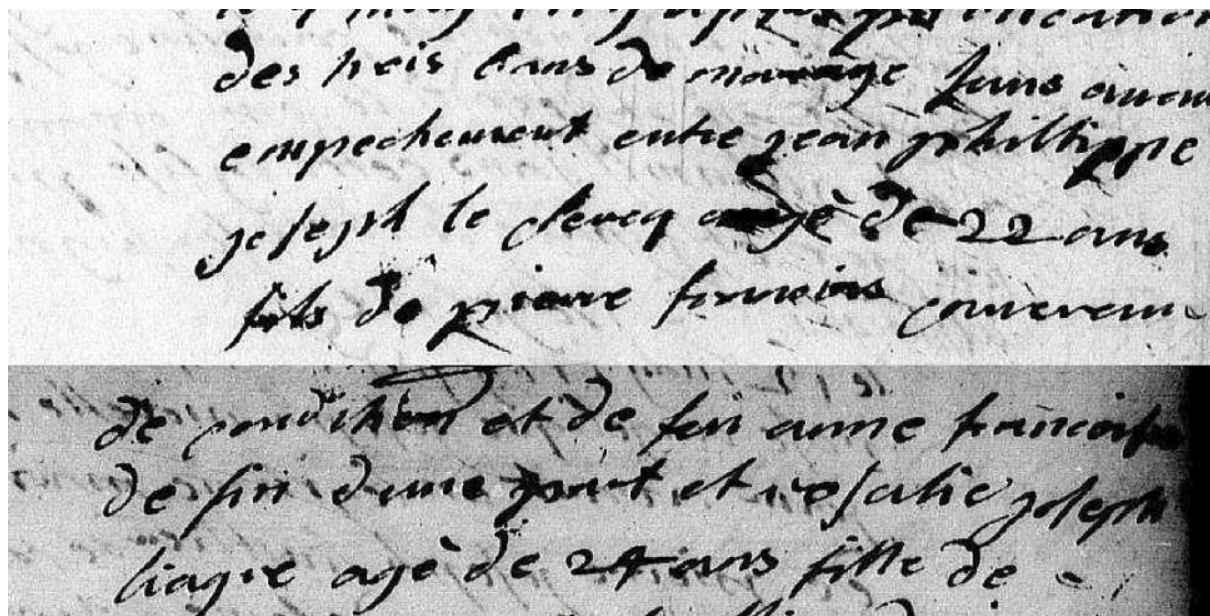 publication
des trois bans de mariage sans aucun
empechement entre jean phillippe
joseph le clercq agè de 22 ans
fils de pierre francois couvreur
de condition et de feu anne francoise
de fin dune part et rosalie joseph
liagre agè de 24 ans fille de